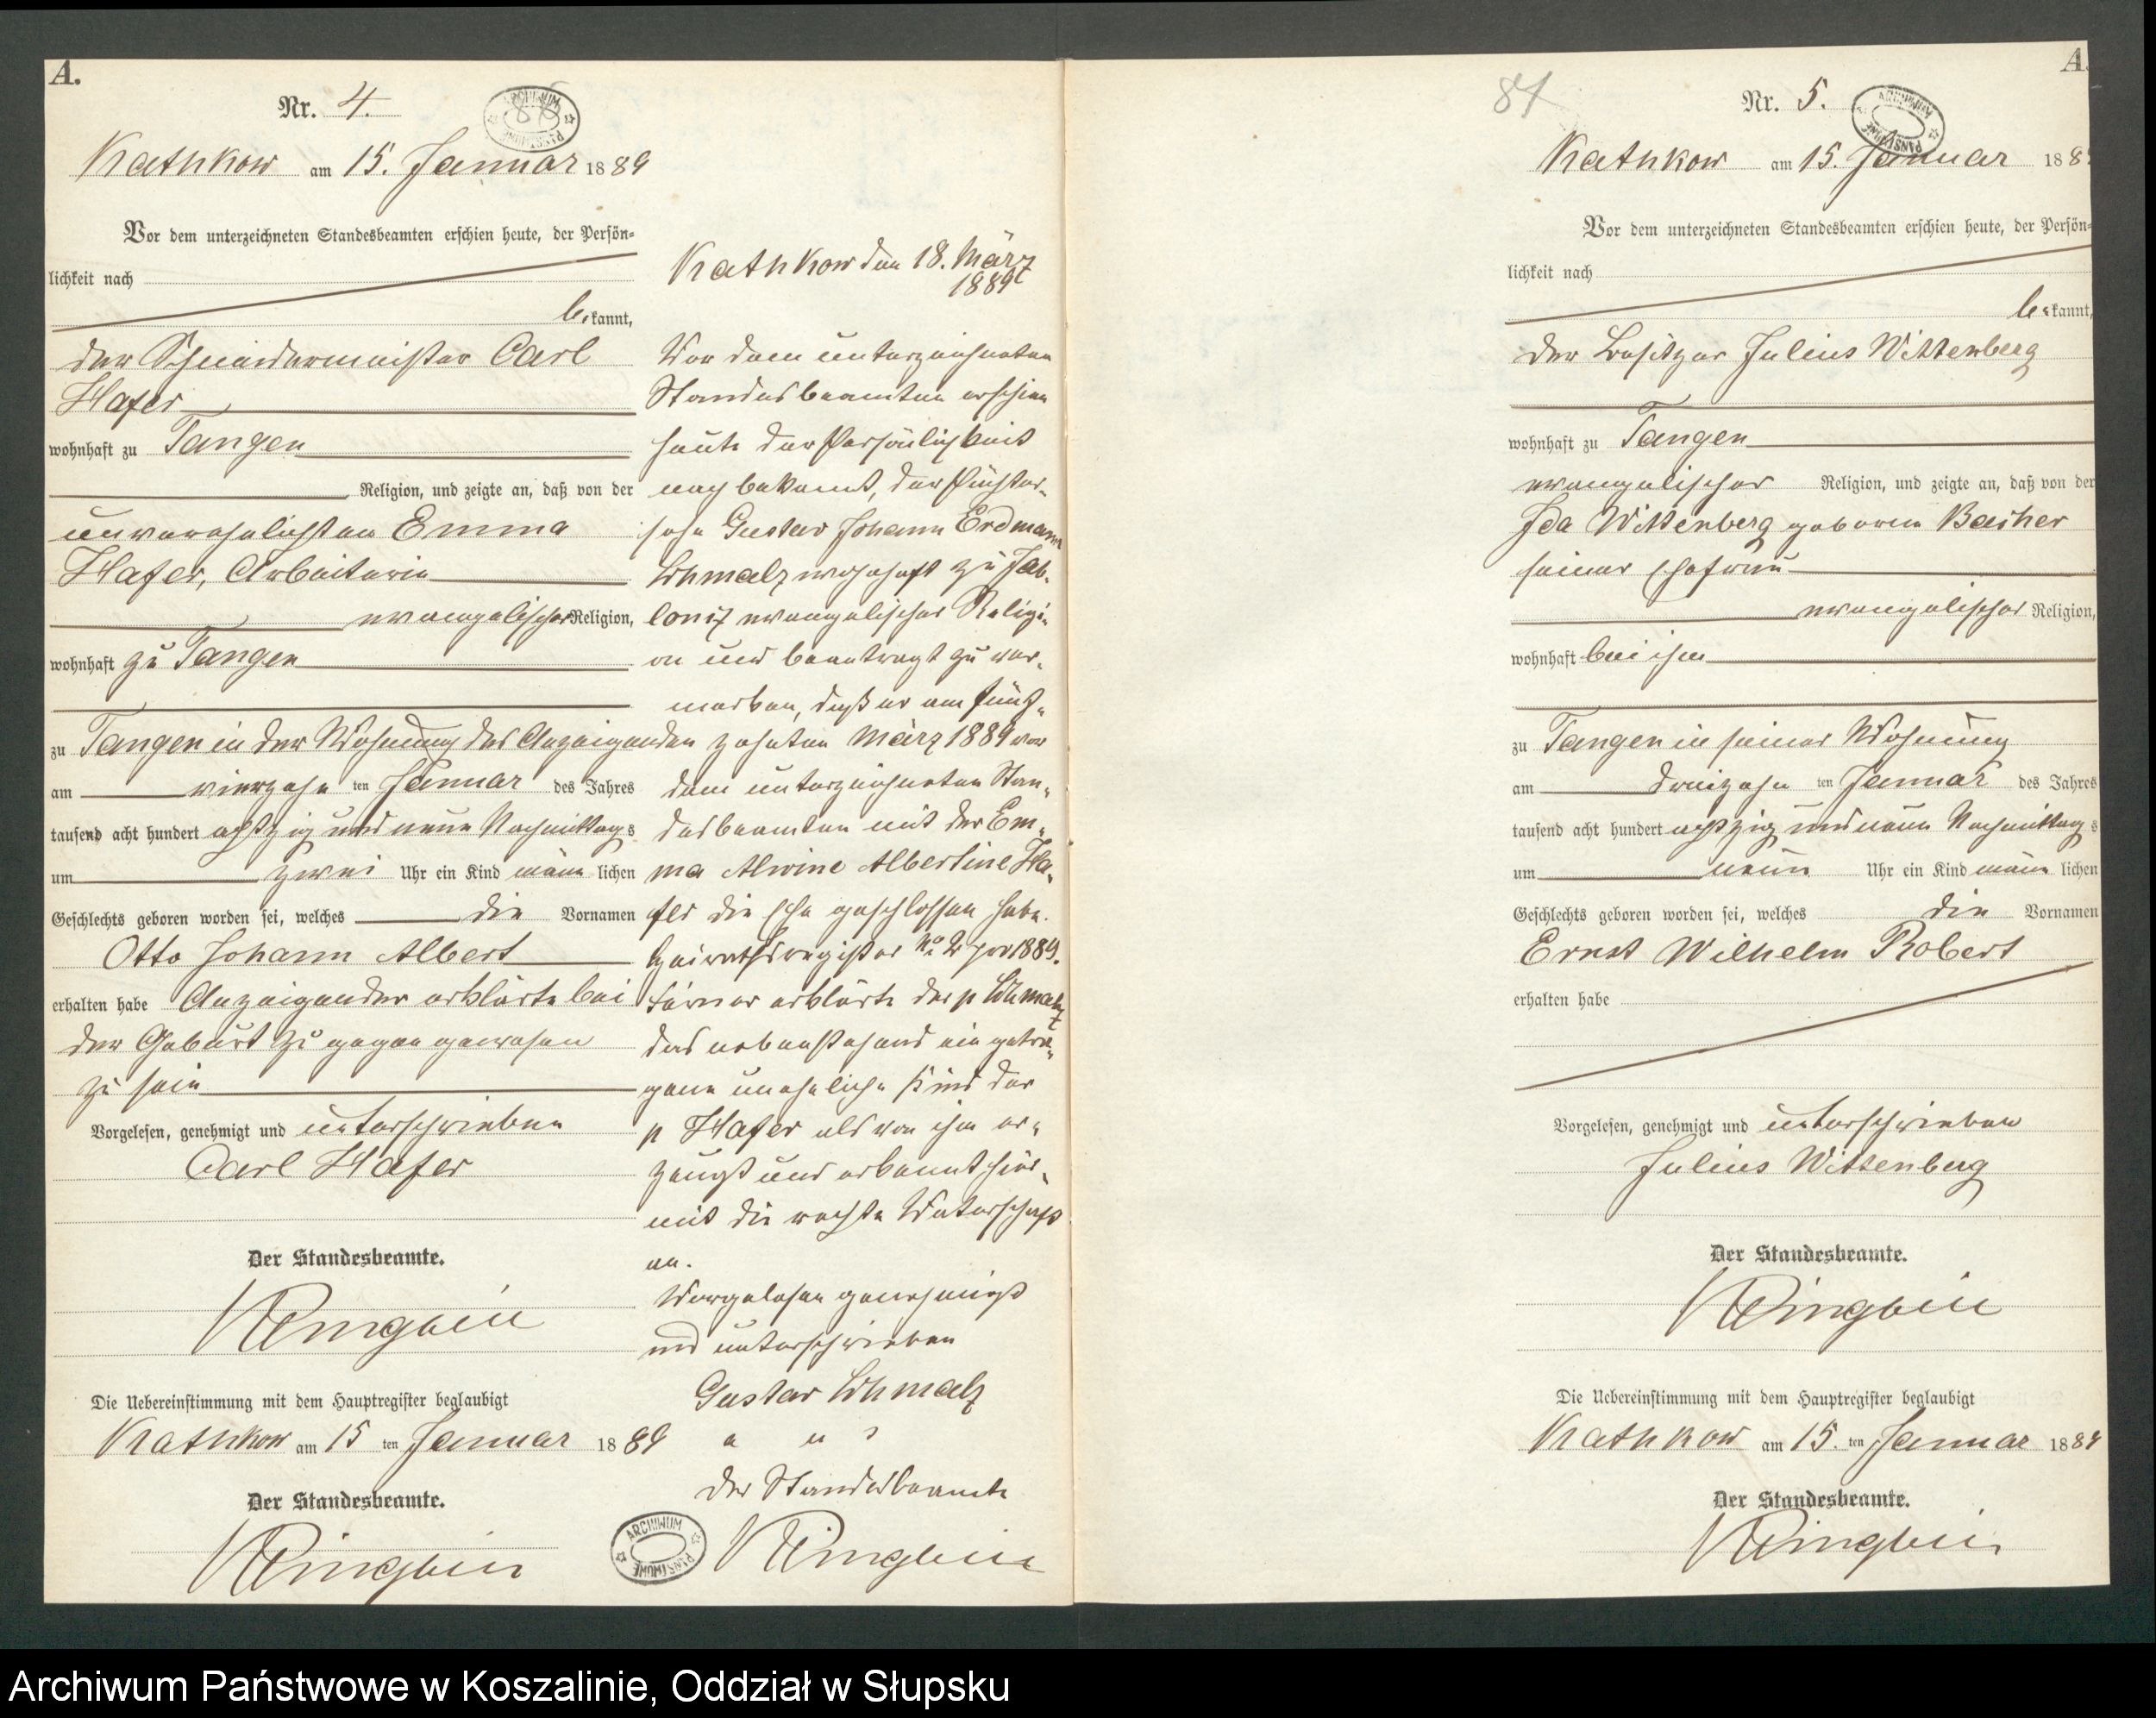 A.
Nr. 4.
Kathkow am 15. Januar 1889
Vor dem unterzeichneten Standesbeamten erschien heute, der Persön-
lichkeit nach
be kannt,
der Schneidermeister Carl
Hafer
wohnhaft zu Tangen
Religion, und zeigte an, daß von der
unverehelichten Emma
Hafer, Arbeiterin
evangelischer Religion,
wohnhaft zu Tangen
zu Tangen in der Wohnung des Anzeigenden
am vierzehn ten Januar des Jahres
tausend acht hundert achtzig und neun Nachmittags
um zwei Uhr ein Kind männ lichen
Geschlechts geboren worden sei, welches die Vornamen
Otto Johann Albert
erhalten habe Anzeigender erklärte bei
der Geburt zugegen gewesen
zu sein
Vorgelesen, genehmigt und unterschrieben
Carl Hafer
Der Standesbeamte.
Die Uebereinstimmung mit dem Hauptregister beglaubigt
Kathkow am 15 ten Januar 1889
Der Standesbeamte.
Kathkow den 18. März
1889
Vor dem unterzeichneten
Standesbeamten erschien
heute der Persönlichkeit
nach bekannt, der
sohn Gustav Johann Erdmann
Schmalz wohnhaft zu Jab-
lonz evangelischer Religi-
on und beantragt zu ver-
merken, daß er am fünf-
zehnten März 1889 vor
dem unterzeichneten Stan-
desbeamten mit der Em-
ma Alwine Albertine Ha-
fer die Ehe geschlossen habe.
Heirathsregister No 2 pro 1889.
Ferner erklärte der p Schmalz
das nebenstehend eingetra-
gene uneheliche Kind der
p Hafer als von ihm er-
zeugt und erkennt hier-
mit die Vaterschaft
an.
Vorgelesen genehmigt
und unterschrieben
Gustav Schmalz
Der Standesbeamte
ARCHIWUM PAŃSTWOWE
84
A.
Nr. 5.
Kathkow am 15. Januar 188
Vor dem unterzeichneten Standesbeamten erschien heute, der Persön-
lichkeit nach
be kannt,
der Besitzer Julius Wittenberg
wohnhaft zu Tangen
evangelischer Religion, und zeigte an, daß von der
Ida Wittenberg geborene
seiner Ehefrau
evangelischer Religion,
wohnhaft bei ihm
zu Tangen in seiner Wohnung
am dreizehn ten Januar des Jahres
tausend acht hundert achtzig und neun Nachmittags
um neun Uhr ein Kind männ lichen
Geschlechts geboren worden sei, welches die Vornamen
Ernst Wilhelm Robert
erhalten habe
Vorgelesen, genehmigt und unterschrieben
Julius Wittenberg
Der Standesbeamte.
Die Uebereinstimmung mit dem Hauptregister beglaubigt
Kathkow am 15. ten Januar 1889
Der Standesbeamte.
Archiwum Państwowe w Koszalinie, Oddział w Słupsku